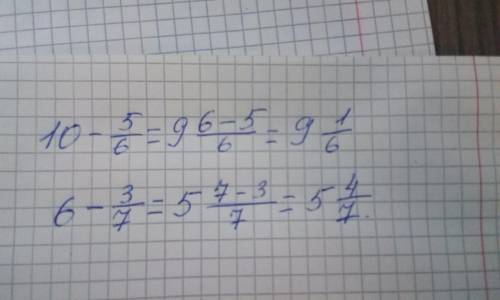 10 - 5/6 = 9 6-5/6 = 9 1/6
6 - 3/7 = 5 7-3/7 = 5 4/7.